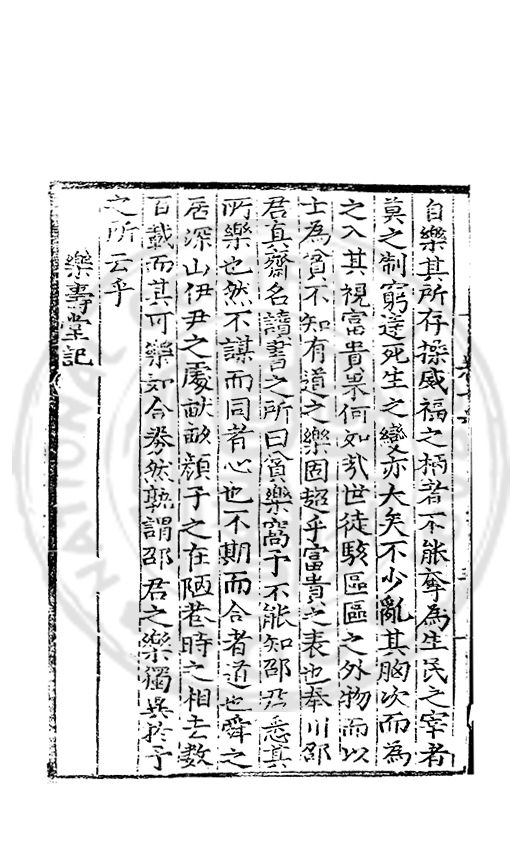 自樂其所存操威福之柄者不能奪為生民之宰者
莫之制窮達死生之變亦大矣不少亂其胸次而為
之入其視富貴果何如哉世徒駭區區之外物而以
士為貧不知有道之樂固超乎富貴之表也奉川邵
君真齋名讀書之所曰貧樂窩予不能知邵君悉其
所樂也然不謀而同者心也不期而合者道也舜之
居深山伊尹之處畎畝顏子之在陋巷時之相去數
百載而其可樂如合券然孰謂邵君之樂獨異於予
之所云乎
樂壽堂記
NATIONAL